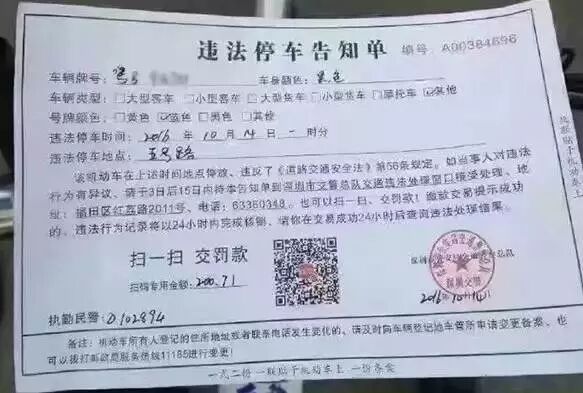 违法停车告知单 编号: A00384696
车辆牌号: 车身颜色:
车辆类型: □大型客车 □小型客车 □大型货车 □小型货车 □摩托车 ☑其他
号牌颜色: □黄色 ☑蓝色 □黑色 □其他
违法停车时间: 2016 年 10 月 14 日 一 时 分
违法停车地点:
该机动车在上述时间地点停放, 违反了《道路交通安全法》第56条规定。如当事人对违法
行为有异议, 请于3日后15日内持本告知单到深圳市交警总队交通违法处理窗口接受处理、地
址: 福田区红荔路2011号、电话: 63360348。也可以扫一扫、交罚款! 缴款交易提示成功
的、违法行为记录将以24小时内完成核销、请你在交易成功24小时后查询违法处理结果。
扫一扫 交罚款
扫码专用金额: 200.71
2016 10 14
执勤民警: D102894
备注: 机动车所有人登记的住所地址或者联系电话发生变化的、请及时向车辆登记地车管所申请变更备案、也
可以拨打邮政局服务热线11185进行变更!
一式二份 一联贴于机动车上 一份备案
此联贴于机动车上